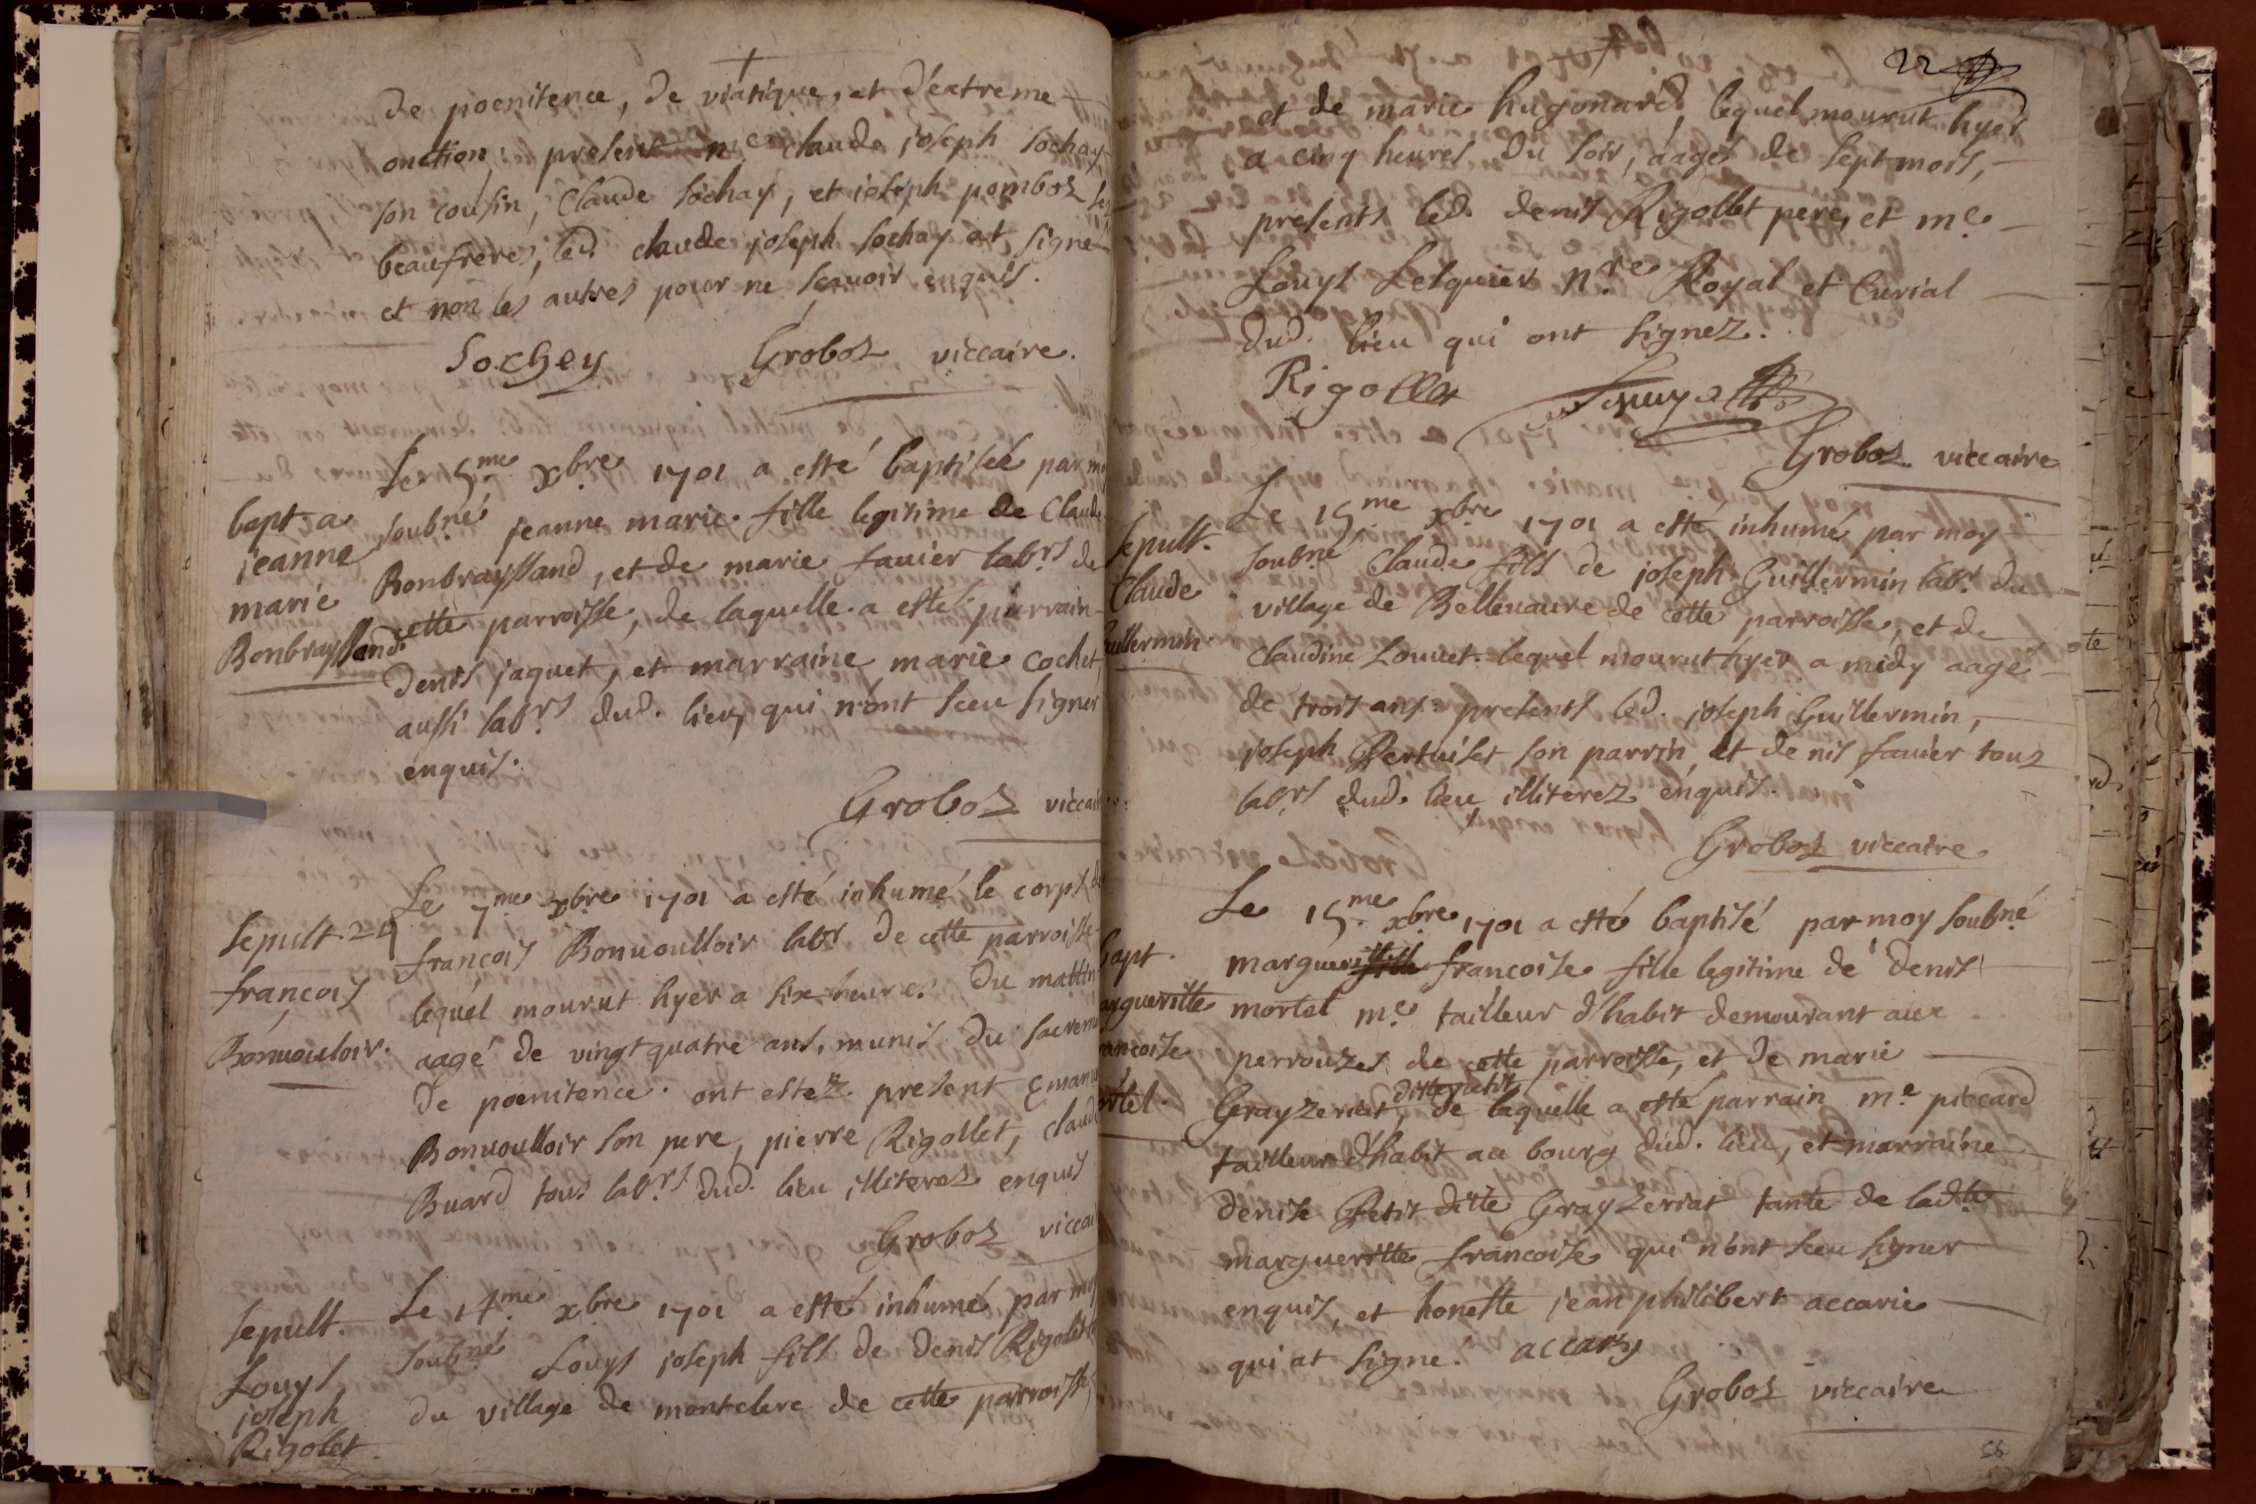 de poenitence, de viatique, et d'extreme
onction, present me claude joseph sochay
son cousin, Claude sochay, et joseph pomboz ses
beaufreres, led. claude joseph sochay at signé
et non les autres pour ne scavoir enquis.
Sochey Groboz viccaire.
bapt. a
jeanne
marie
Bonbrayssand.
Le 5me xbre 1701 a esté baptiseé par moy
soubné jeanne marie fille legitime de Claude
Bonbrayssand, et de marie favier labrs de
cette parroisse, de laquelle a esté parrain
Denis jaquet, et marraine marie cochet,
aussi labrs dud. lieu, qui n'ont sceu signer
enquis.
Groboz viccai
Sepult. 24
françois
Bonvouloir.
Le 7me xbre 1701 a esté inhumé le corps de
françois Bonvoulloir labr de cette parroisse
lequel mourut hyer a six heures du mattin
aagé de vingt quatre ans, munis du sacrem
de poenitence. ont estez present Emanu
Bonvoulloir son pere, pierre Rigollet, claude
Buard tous labrs dud. lieu illiterez enquis
Groboz viccai
Sepult.
Louys
joseph
Rigolet
Le 14me xbre 1701 a esté inhumé par moy
soubné Louys joseph fils de Denis Rigolet
du village de montclere de cette parroisse,
22
et de marie hugonard, lequel mourut hyer
a cinq heures du soir, áagé de sept mois,
presents led. denis Rigollet pere, et me
Louys Lesquier nre Royal et Curial
dud. lieu qui ont signez.
Rigollet
Groboz viccaire
Sepult.
Claude
uillermin
Le 15me xbre 1701 a esté inhumé par moy
soubné Claude fils de joseph Guillermin labr du
village de Bellevavre de cette parroisse, et de
Claudine Louvet. lequel mourut hyer a midy aagé
de trois ans presents led. joseph Guillermin,
joseph Pertuiset son parrin, et denis favier tous
labrs dud. lieu illiterez enquis.
Groboz viccaire
bapt.
argueritte
rancoise
ortel.
Le 15me xbre 1701 a esté baptisé par moy soubné
marguerite francoise fille legitime de denis
mortel me tailleur d'habit demourant aux
perrouzes de cette parroisse, et de marie
Grayzeriat, ditte petit de laquelle a esté parrain me piccard
tailleur d'habit au bourg dud. lieu, et marraine
denise Petit ditte Grayzeriat tante de ladte
margueritte francoise qui n'ont sceu signer
enquis, et honeste jean philibert accarie
qui at signé. accary
Groboz viccaire